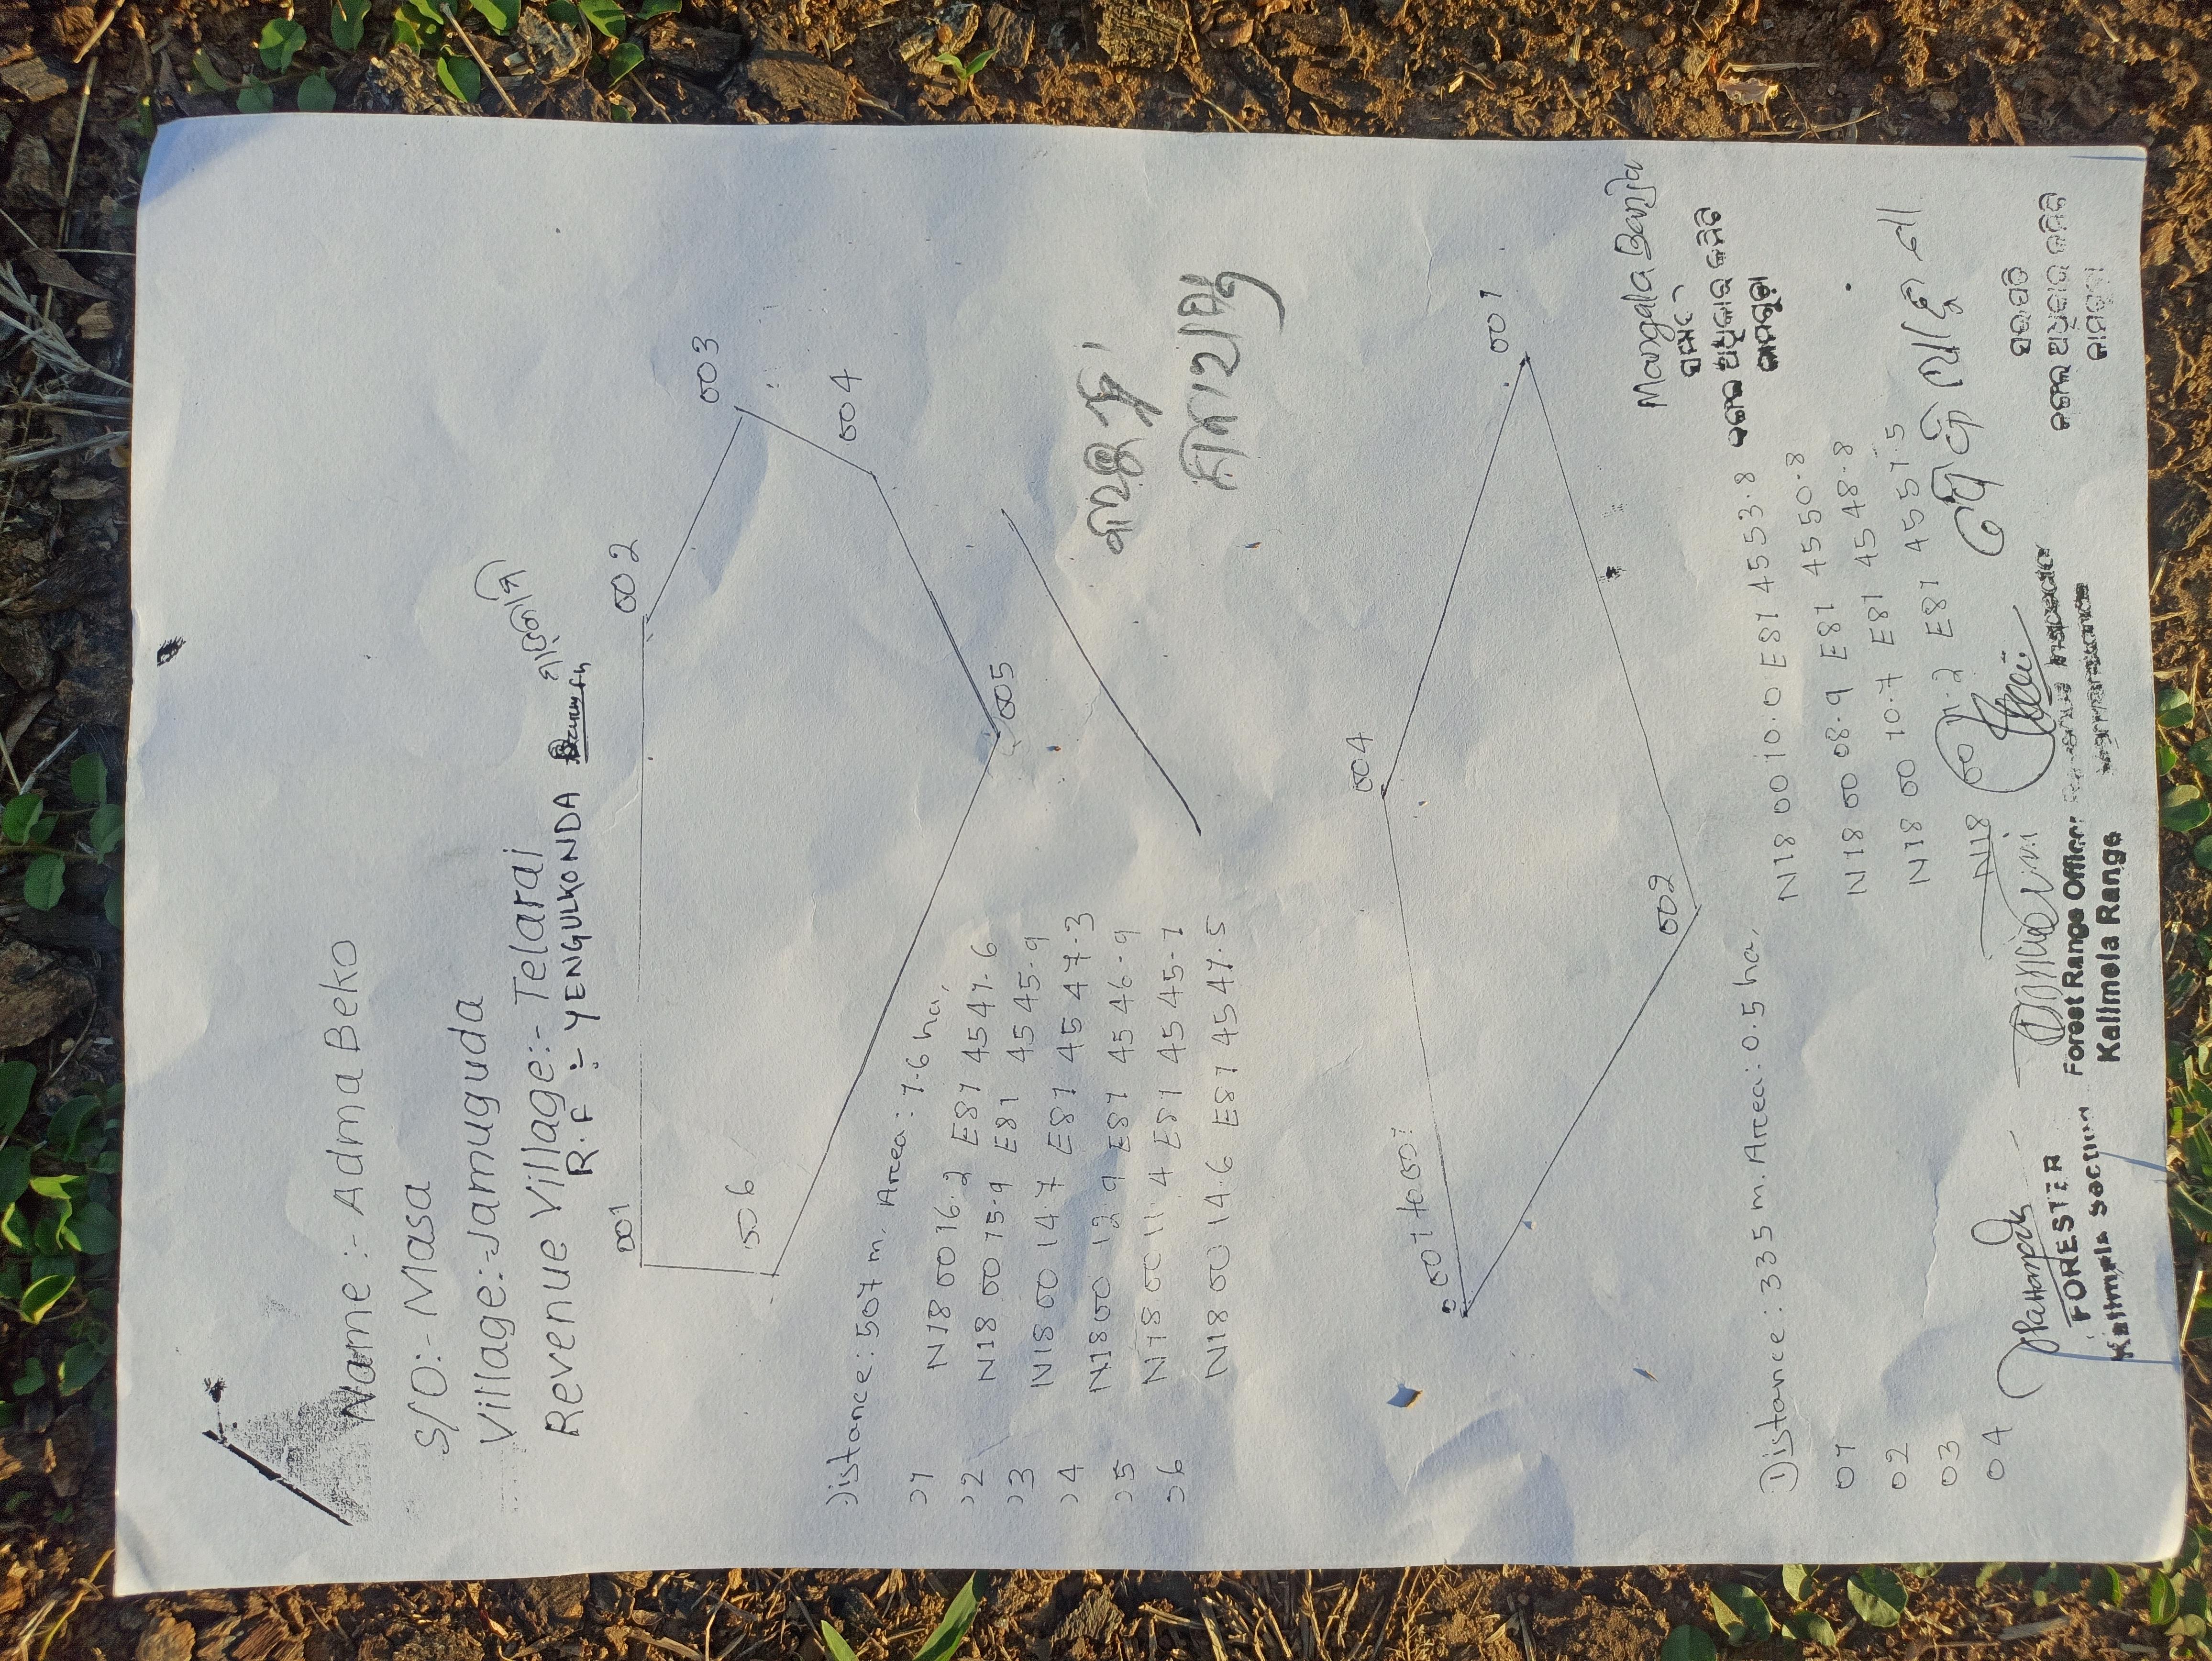 Name :- Adma Beko
S/O:- Masa
Village:-Jamuguda
Revenue Village:- Telarai
R.F :- YENGULKONDA
001
002
003
004
005
006
Distance: 507 m, Area: 1.6 ha,
01 N18 00 16.2 E81 45 47.6
02 N18 00 15.9 E81 45 45.9
03 N18 00 14.7 E81 45 47.3
04 N18 00 12.9 E81 45 46.9
05 N18 00 11.4 E81 45 45.1
06 N18 00 14.6 E81 45 47.5
004
001
001 to 001
002
Mangala Banja
ଜଙ୍ଗଲ ଅଧିକାର କମିଟି
ଜାମଗୁଡ଼ା
Distance: 335 m. Area: 0.5 ha,
01 N18 00 10.0 E81 45 53.8
02 N18 00 08.9 E81 45 50.8
03 N18 00 10.7 E81 45 48.8
04 N18 00 11.2 E81 45 51.5
FORESTER
Kalimela Section
Forest Range Officer
Kalimela Range
Revenue Inspector
ସଭାପତି
ଜଙ୍ଗଲ ଅଧିକାର କମିଟି
ଜାମଗୁଡ଼ା